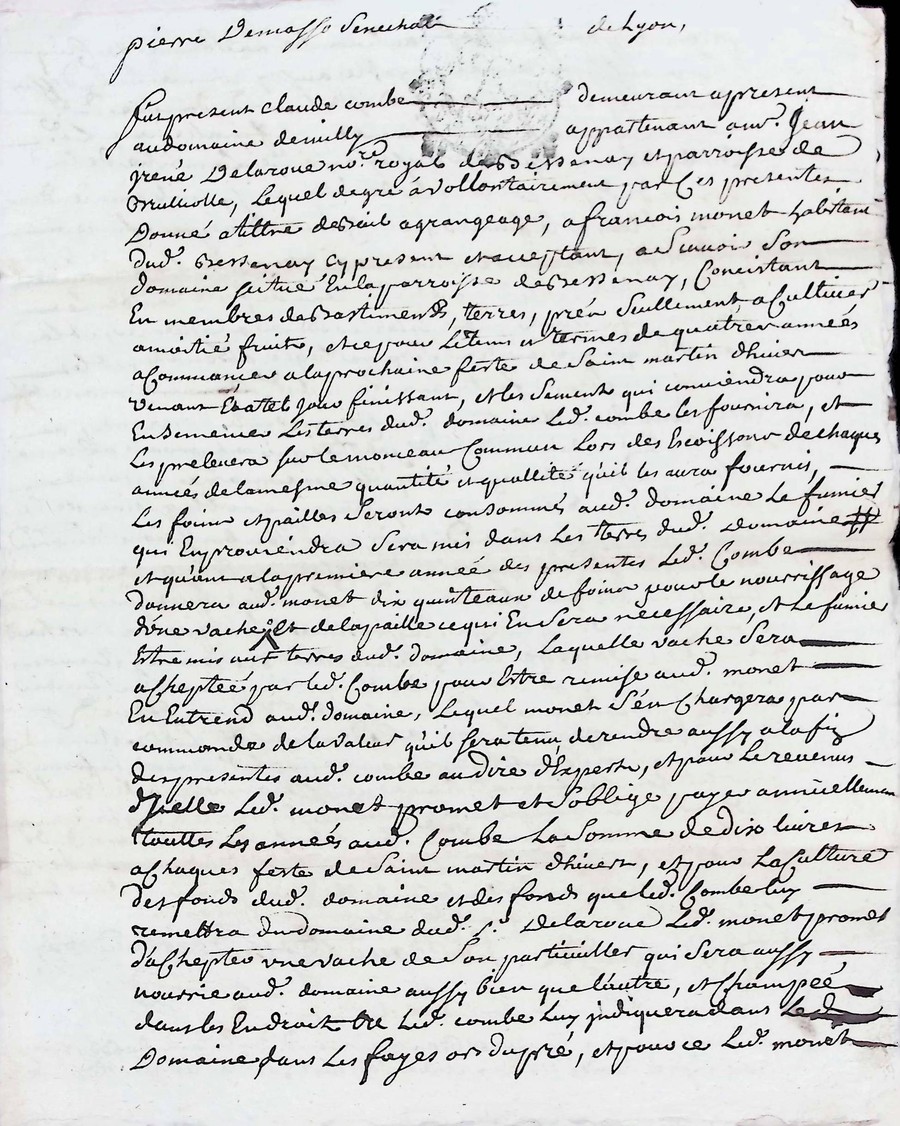 pierre Demasso Senechal de Lyon,
fut present Claude combe demeurant apresent
au domaine demilly appartenant a mr. Jean
jrené Delaroue nore. royal de Bessenay et parroisse de
Brullolle, Lequel degré a vollontairement par Ces presentes
Donné a tiltre de bail a grangeage, a francois monet habitant
dud. Bessenay cy present et acceptant, a Scavoir Son
domaine scitué En la parroisse de Bessenay, Concistant
En membres de Bastiments, terres, prés Seullement a Cultiver
a moitié fruits, et ce pour Le tems et termes de quatres années
a Commancer a la prochaine feste de Saint martin dhiver
venant Et a tel jour finissant, et les Sements qui conviendra pour
Ensemencer Les terres dud. domaine Led. combe les fournira, et
Les prelevera sur le monceau Commun Lors des Escoissons de chaques
années de la mesme quantité et quallité quil les aura fournis,
Les foins et pailles Seront consommés aud. domaine Le fumier
qui En proviendra Sera mis dans Les terres dud. Domaine #
et quant a la premiere année des presentes Led. Combe
donnera aud. monet dix quintaux de foins pour le nourrissage
d'une vache, et de la paille ce qui En Sera nécessaire, et Le fumier
Estre mis aux terres dud. domaine, Laquelle vache Sera
acheptée par led. Combe pour Estre remise aud. monet
En Entrend aud. domaine, Lequel monet S'en Chargera par
commande de la valeur quil sera tenu de rendre aussy a la fin
des presentes aud. combe au dire d'Experts, et pour Le revenus
d'Icelle Led. monet promet et Soblige payer annuellement
touttes Les années aud. Combe La Somme de dix livres
a Chaques feste de Saint martin dhivert, et pour La Culture
des fonds dud. domaine et des fonds que led. Combe luy
remettra du domaine dud. Sr. Delaroue Led. monet promet
d'achepter une vache de Son particuiller qui Sera aussy
nourrie aud. domaine aussy bien que L'autre, et champée
dans les Endroit que Led. combe Luy jndiquera dans Led.
Domaine dans Les fayes ou du pré, et pour ce Led. monet